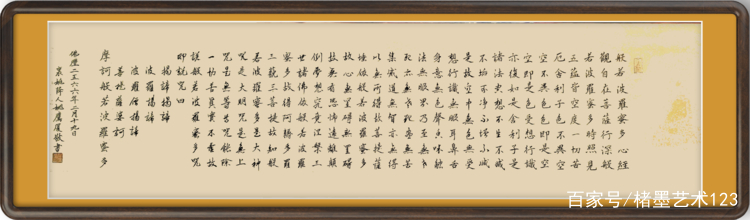 般若波羅蜜多心經
觀自在菩薩行深般
若波羅蜜多時照見
五蘊皆空度一切苦
厄舍利子色不異空
空不異色色即是空
空即是色受想行識
亦復如是舍利子是
諸法空想不生不滅
不垢不淨不增不減
是故空中無色無受
想行識無眼耳鼻舌
身意無色聲香味觸
法無眼界乃至無
死亦無老死盡無苦
集滅道無智亦無得
以無所得故菩提薩
埵依般若波羅蜜多
故心無罣礙無罣礙
故無有恐怖遠離顛
倒夢想究竟涅槃三
世諸佛依般若波羅
蜜多故得阿耨多羅
三藐三菩提故知般
若波羅蜜多是大神
咒是大明咒是無上
咒是無等等咒能除
一切苦真實不虛故
說般若波羅蜜多咒
即說咒曰
揭諦揭諦
波羅揭諦
波羅僧揭諦
菩提薩婆訶
摩訶般若波羅蜜多
佛曆二五六六年二月十九日
敬書
百家号/楮墨艺术123